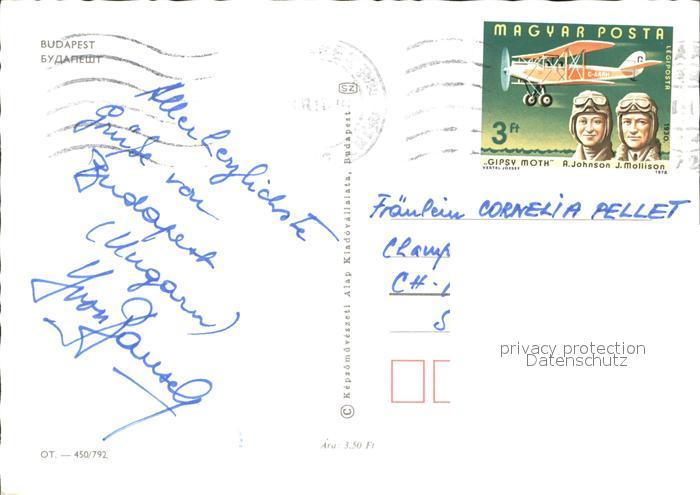 BUDAPEST
БУДАПЕШТ
Allerherzlichste
Grüße von
Budapest
(Ungarn)
Yvon
OT. — 450/792
SZ
© Képzőművészeti Alap Kiadóvállalata, Budapest
Ára: 3,50 Ft
MAGYAR POSTA
LÉGIPOSTA
G-AAAH
1930
3 Ft
„GIPSY MOTH” A. Johnson J. Mollison
VERTEL JÓZSEF 1978
Fräulein CORNELIA PELLET
Champ
CH-
S
privacy protection
Datenschutz